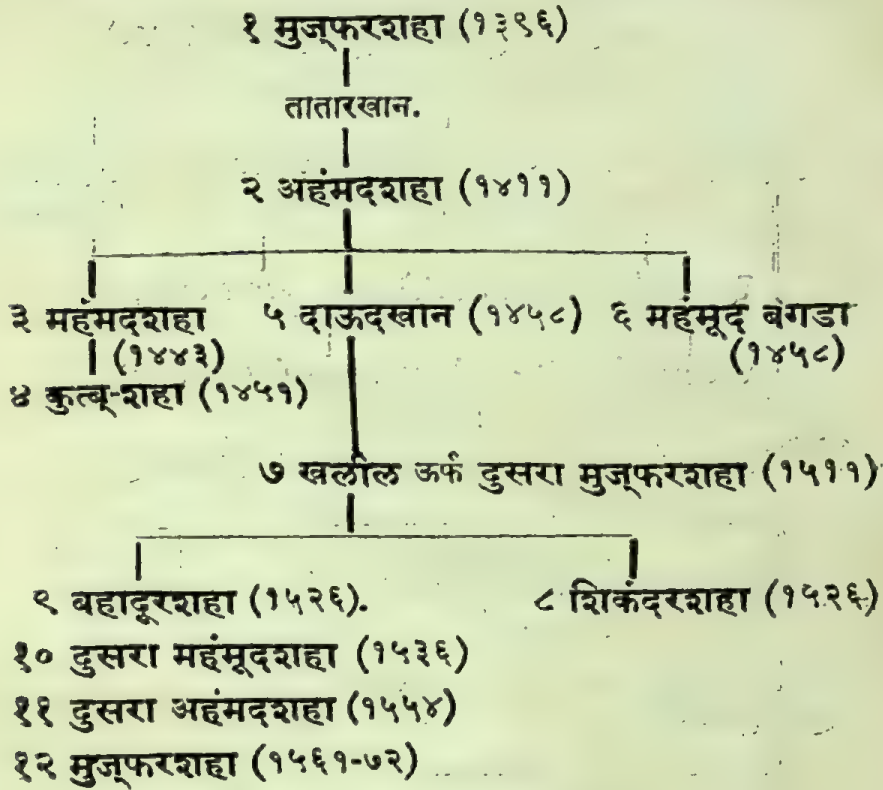 १ मुज्फरशहा (१३९६)
तातारखान.
२ अहंमदशहा (१४११)
३ महंमदशहा (१४४३)
५ दाऊदखान (१४५८)
६ महंमूद बेगडा (१४५८)
४ कुत्ब्-शहा (१४५१)
७ खलील ऊर्फ दुसरा मुज्फरशहा (१५११)
९ बहादूरशहा (१५२६).
८ शिकंदरशहा (१५२६)
१० दुसरा महंमूदशहा (१५३६)
११ दुसरा अहंमदशहा (१५५४)
१२ मुज्फरशहा (१५६१-७२)